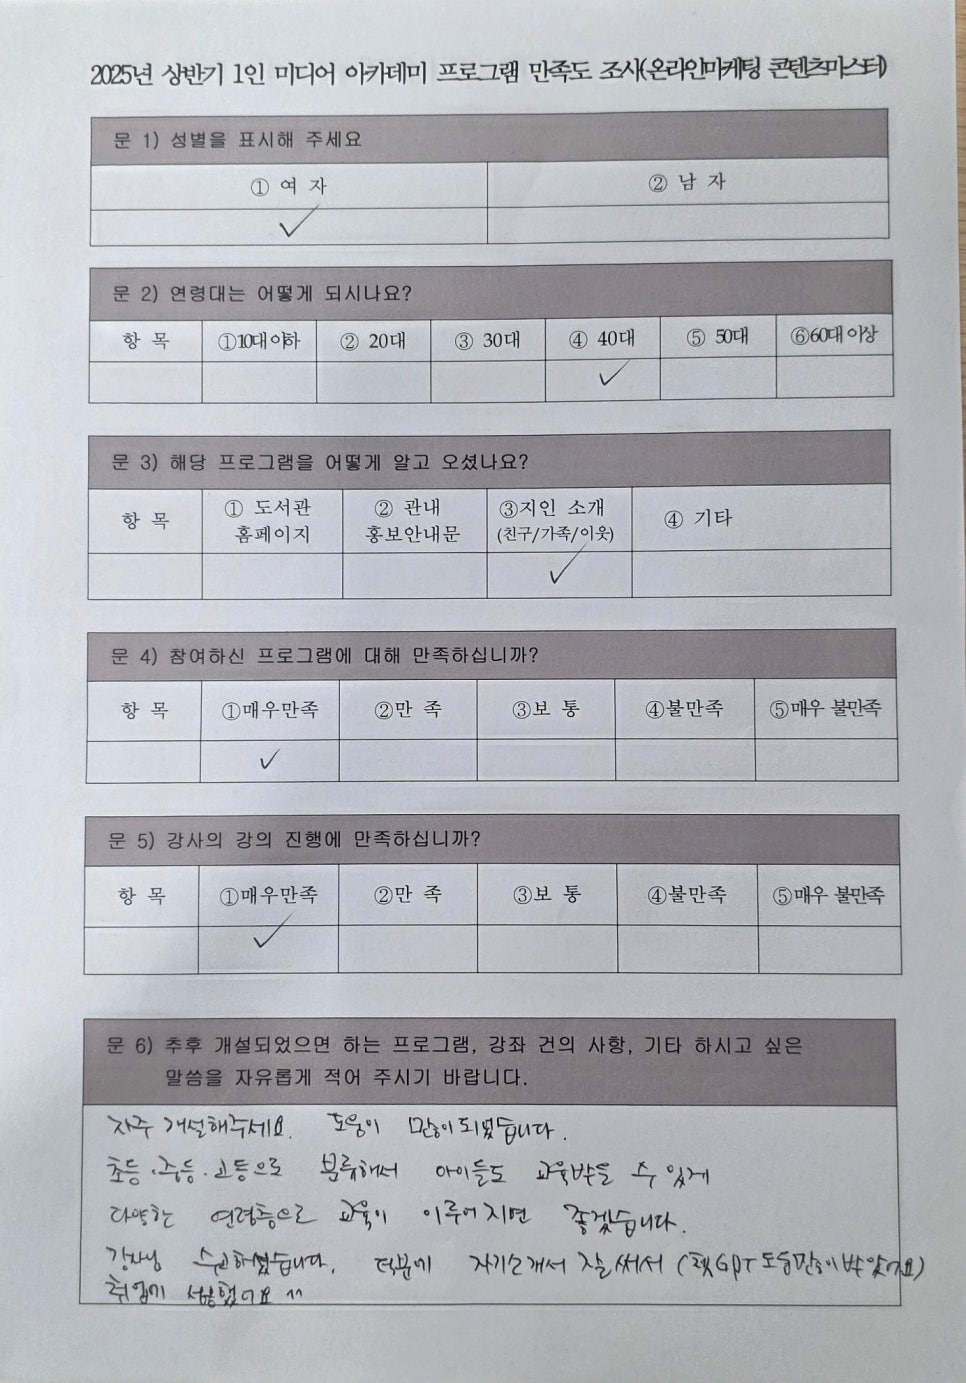 2025년 상반기 1인 미디어 아카데미 프로그램 만족도 조사(온라인마케팅 콘텐츠마스터)
문 1) 성별을 표시해 주세요
① 여 자 ② 남 자
문 2) 연령대는 어떻게 되시나요?
항 목 ①10대 이하 ② 20대 ③ 30대 ④ 40대 ⑤ 50대 ⑥60대 이상
문 3) 해당 프로그램을 어떻게 알고 오셨나요?
항 목 ① 도서관 홈페이지 ② 관내 홍보안내문 ③지인 소개 (친구/가족/이웃) ④ 기타
문 4) 참여하신 프로그램에 대해 만족하십니까?
항 목 ①매우만족 ②만 족 ③보 통 ④불만족 ⑤매우 불만족
문 5) 강사의 강의 진행에 만족하십니까?
항 목 ①매우만족 ②만 족 ③보 통 ④불만족 ⑤매우 불만족
문 6) 추후 개설되었으면 하는 프로그램, 강좌 건의 사항, 기타 하시고 싶은
말씀을 자유롭게 적어 주시기 바랍니다.
자주 개설해주세요. 도움이 많이 되었습니다.
초등·중등·고등으로 분류해서 아이들도 교육받을 수 있게
다양한 연령층으로 교육이 이루어지면 좋겠습니다.
강사님 수고하셨습니다. 덕분에 자기소개서 잘 써서 (챗GPT 도움많이 받았어요)
취업에 성공했어요 ^^